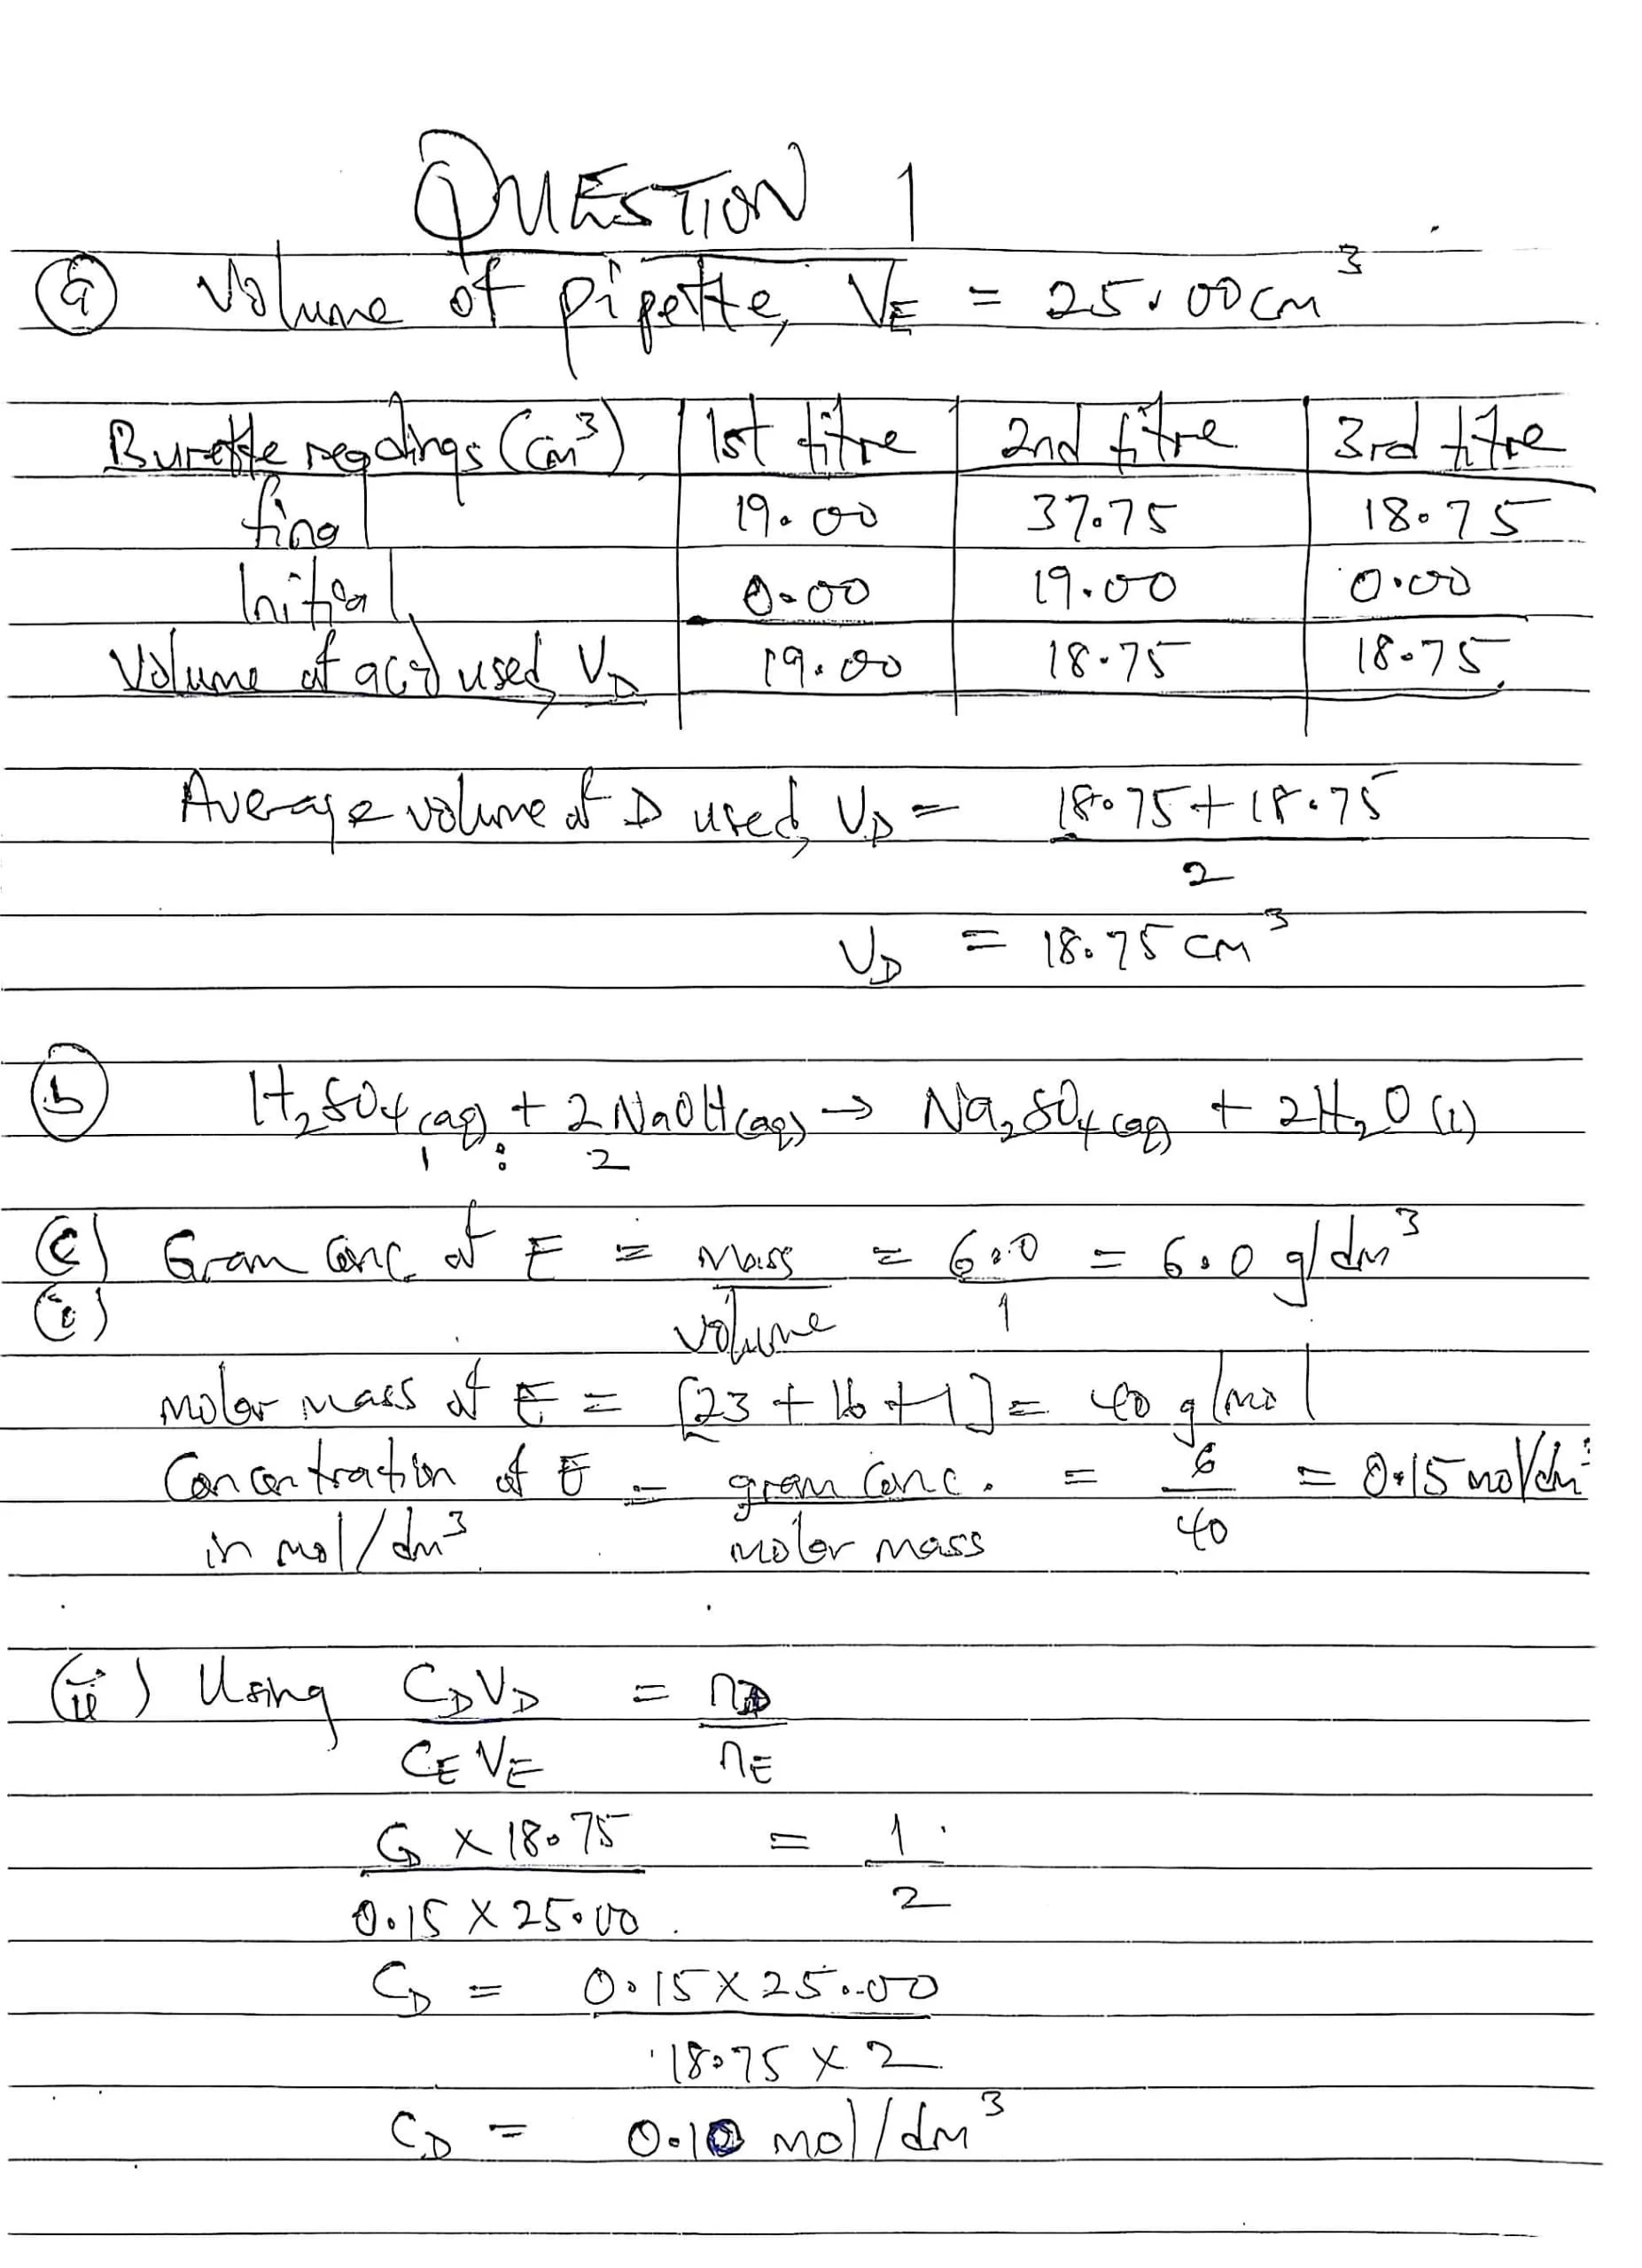 QUESTION 1
(a) Volume of pipette, V_E = 25.00cm³
Burette readings (cm³) | 1st titre | 2nd titre | 3rd titre
final | 19.00 | 37.75 | 18.75
Initial | 0.00 | 19.00 | 0.00
Volume of acid used, V_D | 19.00 | 18.75 | 18.75
Average volume of D used, V_D = 18.75 + 18.75
2
V_D = 18.75 cm³
(b) H₂SO₄(aq) + 2NaOH(aq) → Na₂SO₄(aq) + 2H₂O(l)
1 : 2
(c) Gram Conc. of E = Mass = 6.0 = 6.0 g/dm³
(i) volume 1
molar mass of E = [23 + 16 + 1] = 40 g/mol
Concentration of E = gram Conc. = 6 = 0.15 mol/dm³
in mol/dm³ molar mass 40
(ii) Using C_D V_D = n_D
C_E V_E n_E
C_D × 18.75 = 1
0.15 × 25.00 2
C_D = 0.15 × 25.00
18.75 × 2
C_D = 0.10 mol/dm³